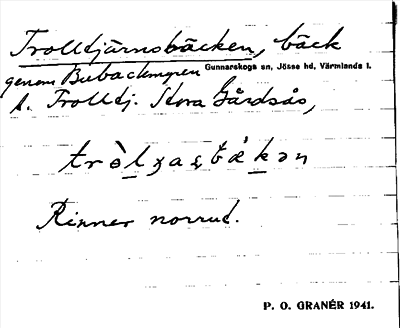 Trolldjärnsbäcken, bäck
Gunnarskogs sn, Jösse hd, Värmlands l.
genom Bubackmyren
t. Trolldj. Stora Gårdsås,
Rinner norrut.
P. O. GRANÉR 1941.